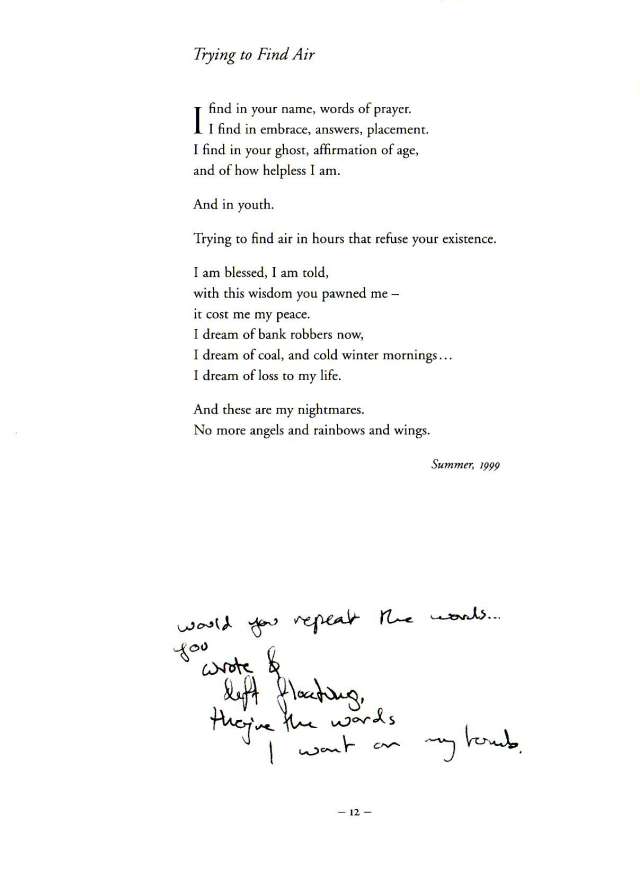 Trying to Find Air
I find in your name, words of prayer.
I find in embrace, answers, placement.
I find in your ghost, affirmation of age,
and of how helpless I am.
And in youth.
Trying to find air in hours that refuse your existence.
I am blessed, I am told,
with this wisdom you pawned me –
it cost me my peace.
I dream of bank robbers now,
I dream of coal, and cold winter mornings...
I dream of loss to my life.
And these are my nightmares.
No more angels and rainbows and wings.
Summer, 1999
would you repeat the words...
you
wrote &
left floating,
they're the words
I want on my tomb.
– 12 –